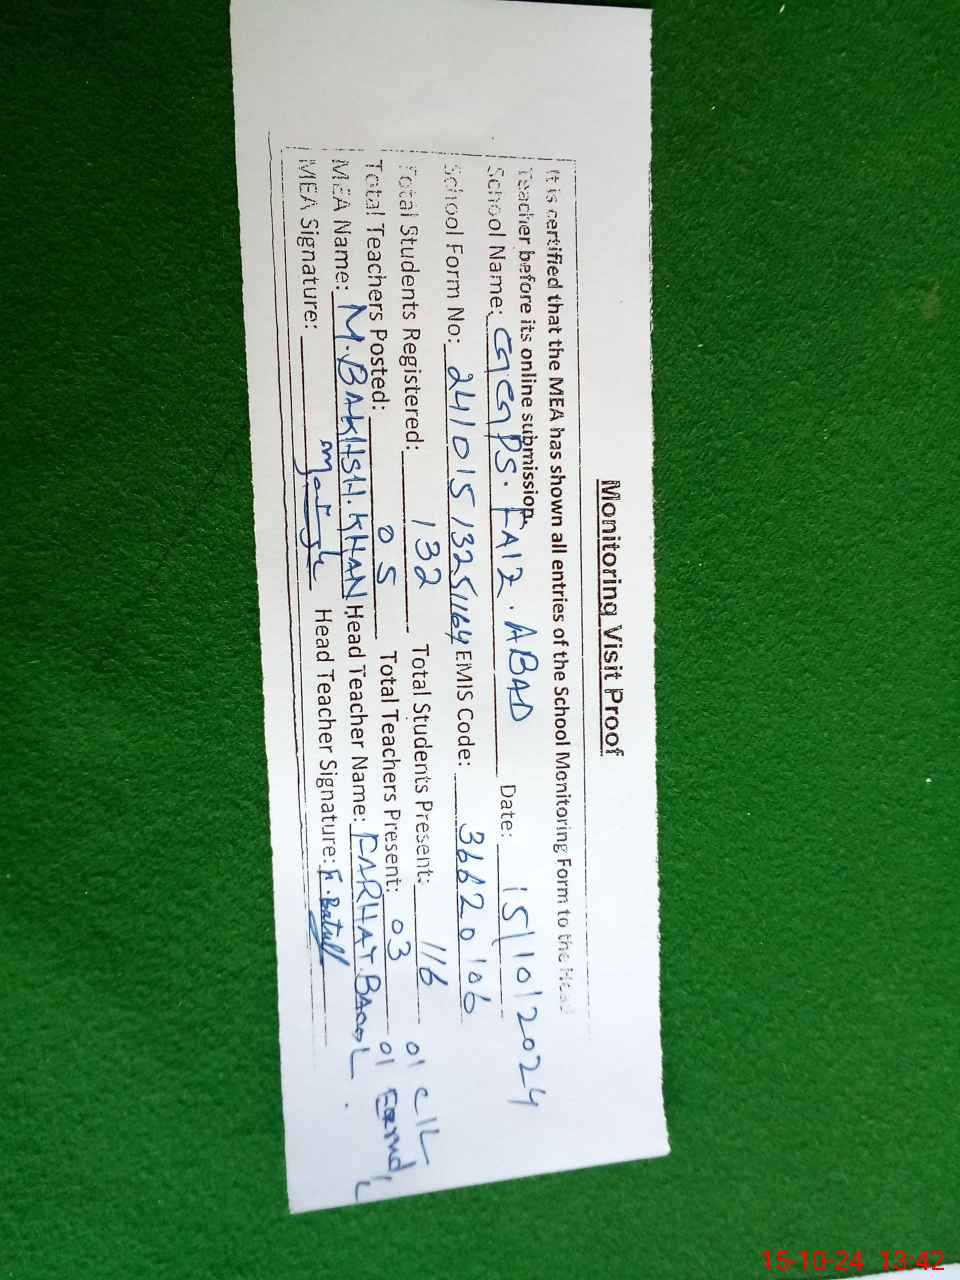 Monitoring Visit Proof
It is certified that the MEA has shown all entries of the School Monitoring Form to the Head
Teacher before its online submission.
School Name: GGPS. FAIZ. ABAD Date: 15/10/2024
School Form No: 24101513251164 EMIS Code: 36620106
Total Students Registered: 132 Total Students Present: 116 01 C/L
Total Teachers Posted: 05 Total Teachers Present: 03 01
MEA Name: M. BAKHSH. KHAN Head Teacher Name: FARHAT. BATOOL
MEA Signature: Head Teacher Signature: F. Batull
15-10-24 13:42